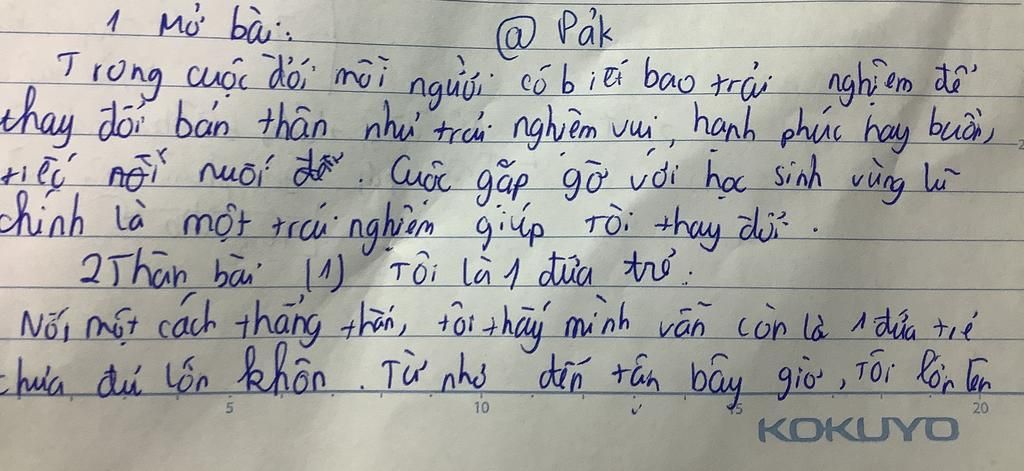 1 Mở bài: @ Pảk
Trong cuộc đời mỗi người có biết bao trải nghiệm để
thay đổi bản thân như trải nghiệm vui, hạnh phúc hay buồn,
tiếc nuối. Cuộc gặp gỡ với học sinh vùng lũ
chính là một trải nghiệm giúp tôi thay đổi.
2 Thân bài (1) Tôi là 1 đứa trẻ.
Nói một cách thẳng thắn, tôi thấy mình vẫn còn là 1 đứa trẻ
chưa đủ lớn khôn. Từ nhỏ đến tận bây giờ, tôi lớn lên
5 10 15 20
KOKUYO